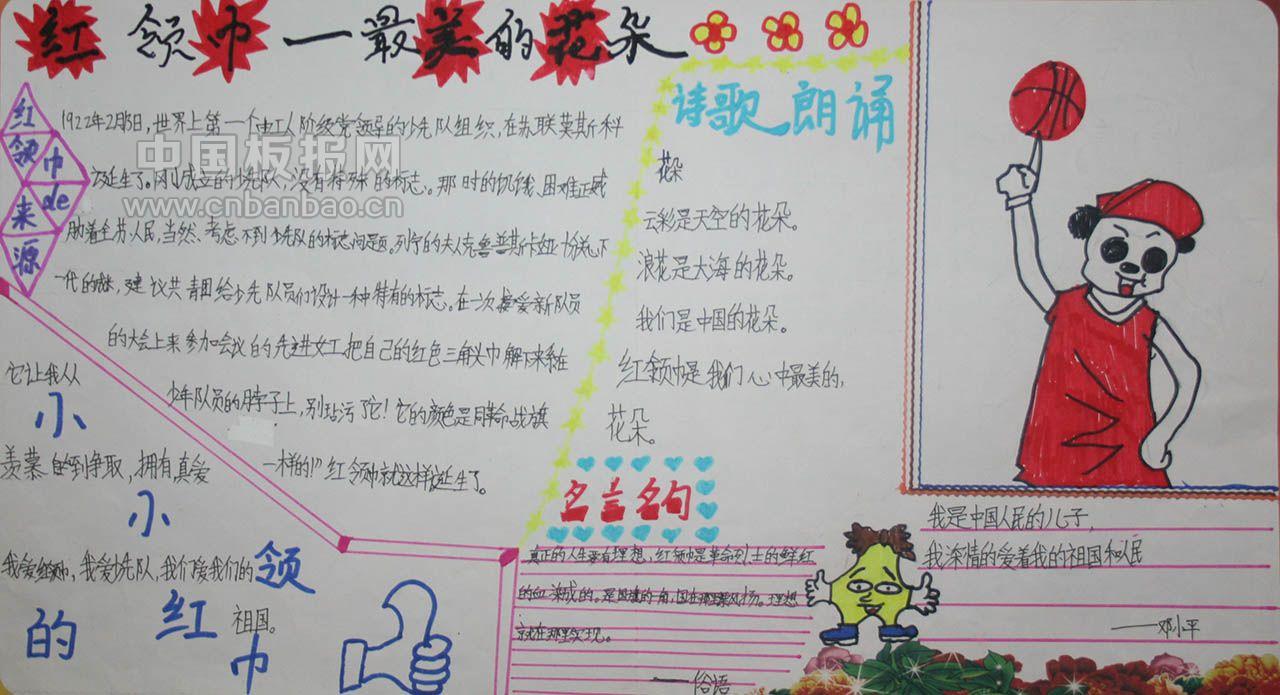 红领巾一最美的花朵
红领巾de来源
1922年2月5日，世界上第一个由工人阶级党领导的少先队组织，在苏联莫斯科
诞生了。刚成立的少先队，没有特殊的标志。那时的饥饿、困难正威
胁着全苏人民，当然、考虑不到少先队的标志问题。列宁的夫人克鲁普斯卡娅
一代的 建议共青团给少先队员们设计一种特有的标志。在一次接受新队员
的大会上来参加会议的先进女工把自己的红色三角头巾解下来系在
少年队员的脖子上，别玷污了它！它的颜色是同革命战旗
一样的！”红领巾就这样诞生了。
中国板报网
www.cnbanbao.cn
诗歌朗诵
花朵
云彩是天空的花朵。
浪花是大海的花朵。
我们是中国的花朵。
红领巾是我们心中最美的，
花朵。
它让我从
小
羡慕 到争取，拥有真爱
小
我爱红领巾，我爱少先队，我们爱我们的
领
的
红
祖国。
巾
名言名句
真正的人生要有理想，红领巾是革命烈士的鲜红
的血染成的。是 的一角，
就在那里实现。
——俗语
我是中国人民的儿子，
我深情的爱着我的祖国和人民
——邓小平